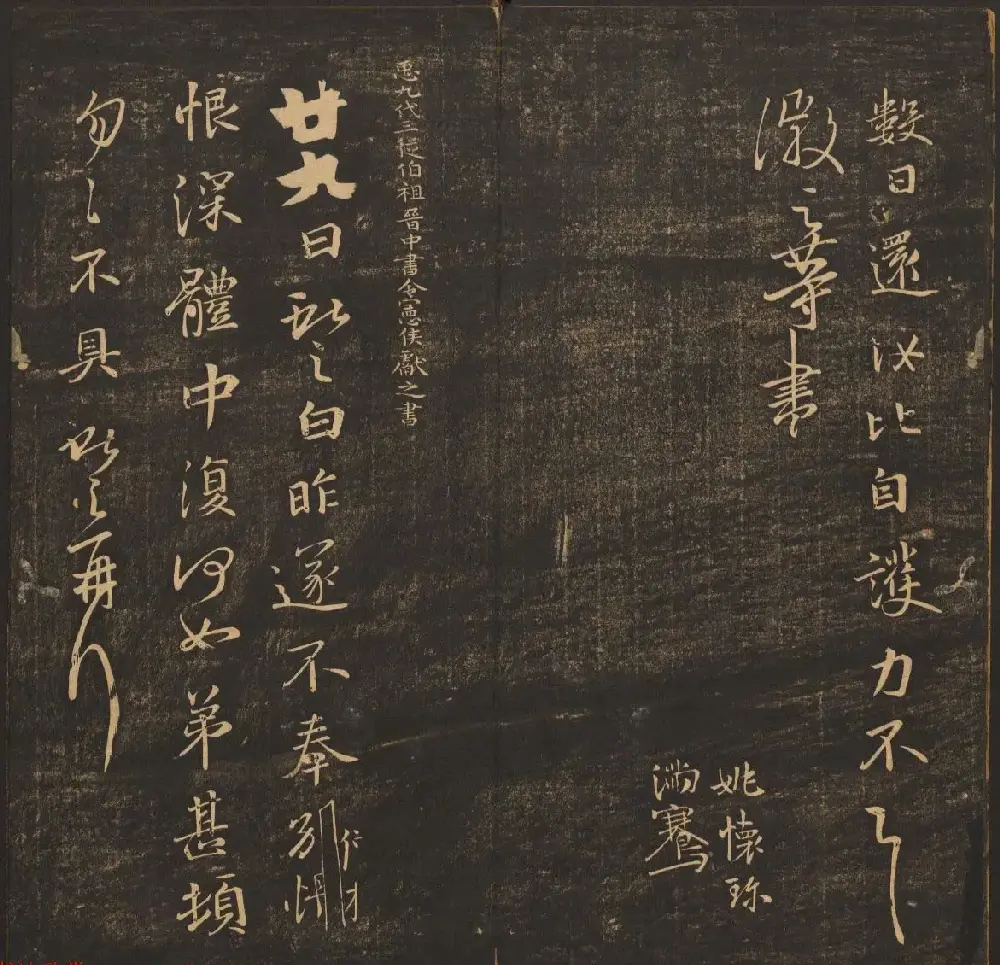 數日還汝比自護力不具
徽之等書
姚懷珍
滿騫
𢘑九代三從伯祖晉中書令憲侯獻之書
廿九日獻之白昨遂不奉別悵
恨深體中復何如弟甚頓
勿々不具獻之再拜